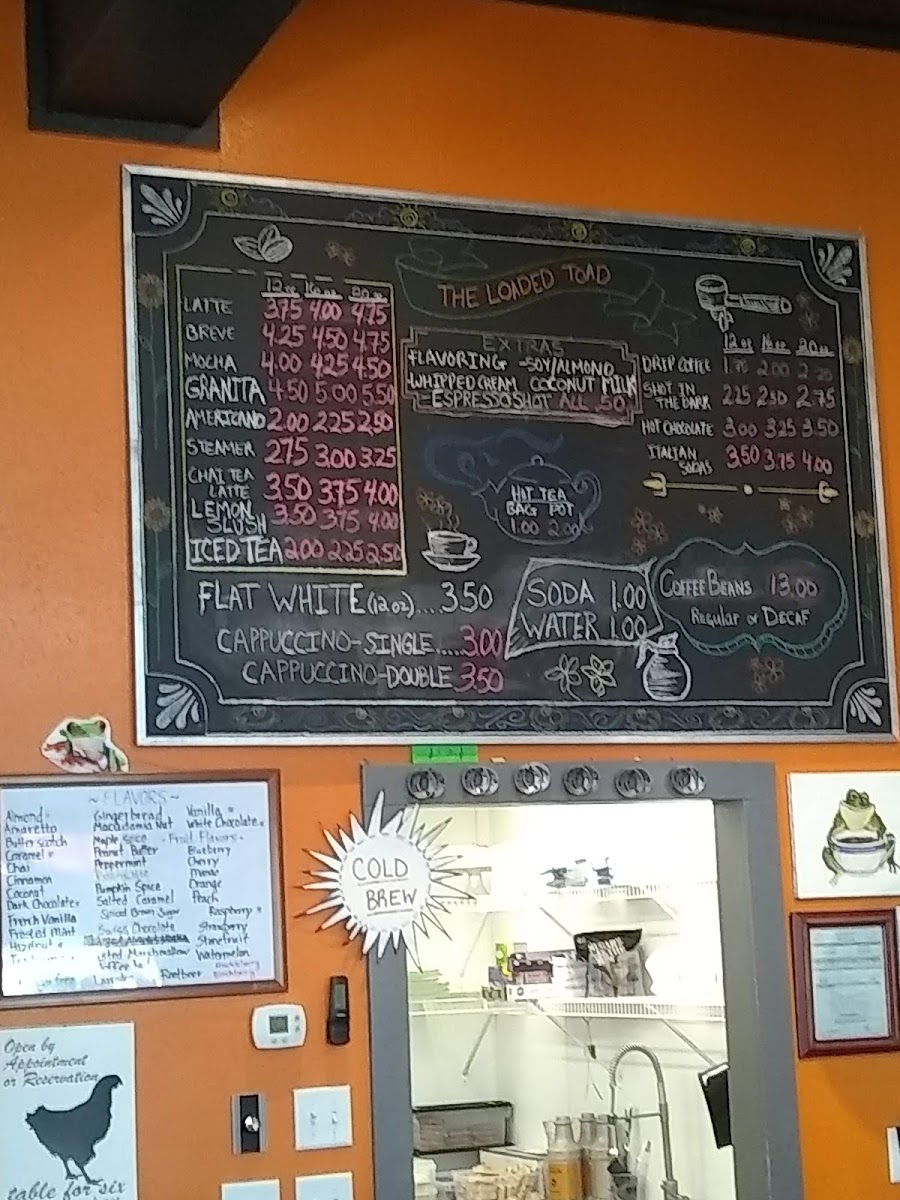 THE LOADED TOAD
12oz 16oz 20oz
LATTE 3.75 4.00 4.75
BREVE 4.25 4.50 4.75
MOCHA 4.00 4.25 4.50
GRANITA 4.50 5.00 5.50
AMERICANO 2.00 2.25 2.50
STEAMER 2.75 3.00 3.25
CHAI TEA
LATTE 3.50 3.75 4.00
LEMON
SLUSH 3.50 3.75 4.00
ICED TEA 2.00 2.25 2.50
FLAT WHITE (12oz)....3.50
CAPPUCCINO-SINGLE.....3.00
CAPPUCCINO-DOUBLE 3.50
EXTRAS
FLAVORING -SOY/ALMOND
WHIPPED CREAM COCONUT MILK
-ESPRESSO SHOT ALL .50
HOT TEA
BAG POT
1.00 2.00
SODA 1.00
WATER 1.00
12oz 16oz 20oz
DRIP COFFEE 2.00
SHOT IN
THE DARK 2.25 2.50 2.75
HOT CHOCOLATE 3.00 3.25 3.50
ITALIAN
SODAS 3.50 3.75 4.00
COFFEE BEANS 13.00
REGULAR or DECAF
~FLAVORS~
Almond
Amaretto
Butterscotch
Caramel
Chai
Cinnamon
Coconut
Dark Chocolate
French Vanilla
Frosted Mint
Hazelnut
Gingerbread
Macadamia Nut
Maple Spice
Peanut Butter
Peppermint
Pumpkin Spice
Salted Caramel
Spiced Brown Sugar
Swiss Chocolate
Marshmallow
Rootbeer
Vanilla
White Chocolate
-Fruit Flavors-
Blueberry
Cherry
Mango
Orange
Peach
Raspberry
Strawberry
Stonefruit
Watermelon
COLD
BREW
Open by
Appointment
or Reservation
table for six